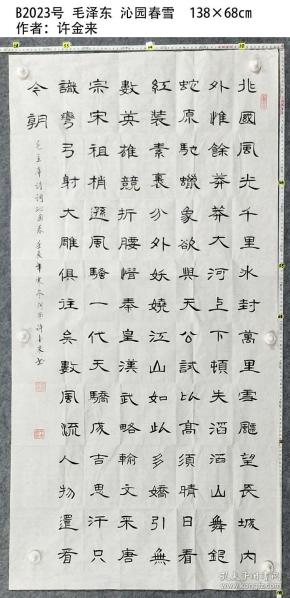 B2023号 毛泽东 沁园春雪 138×68cm
作者：许金来
北國風光千里冰封萬里雪飄望長城內
外惟餘莽莽大河上下頓失滔滔山舞銀
蛇原馳蠟象欲與天公試比高須晴日看
紅裝素裹分外妖嬈江山如此多嬌引無
數英雄競折腰惜秦皇漢武略輸文采唐
宗宋祖稍遜風騷一代天驕成吉思汗只
識彎弓射大雕俱往矣數風流人物還看
今朝
毛主席诗词沁园春